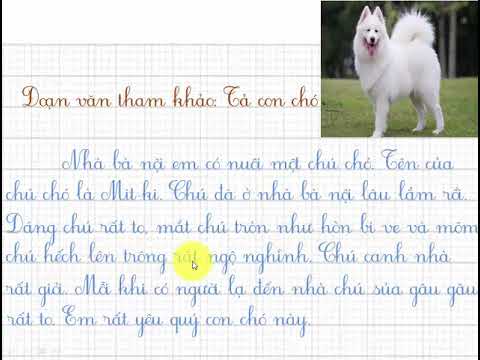 Đoạn văn tham khảo: Tả con chó
Nhà bà nội em có nuôi một chú chó. Tên của
chú chó là Mít-ki. Chú đã ở nhà bà nội lâu lắm rồi.
Dáng chú rất to, mắt chú tròn như hòn bi ve và mõm
chú hếch lên trông rất ngộ nghĩnh. Chú canh nhà
rất giỏi. Mỗi khi có người lạ đến nhà chú sủa gâu gâu
rất to. Em rất yêu quý con chó này.